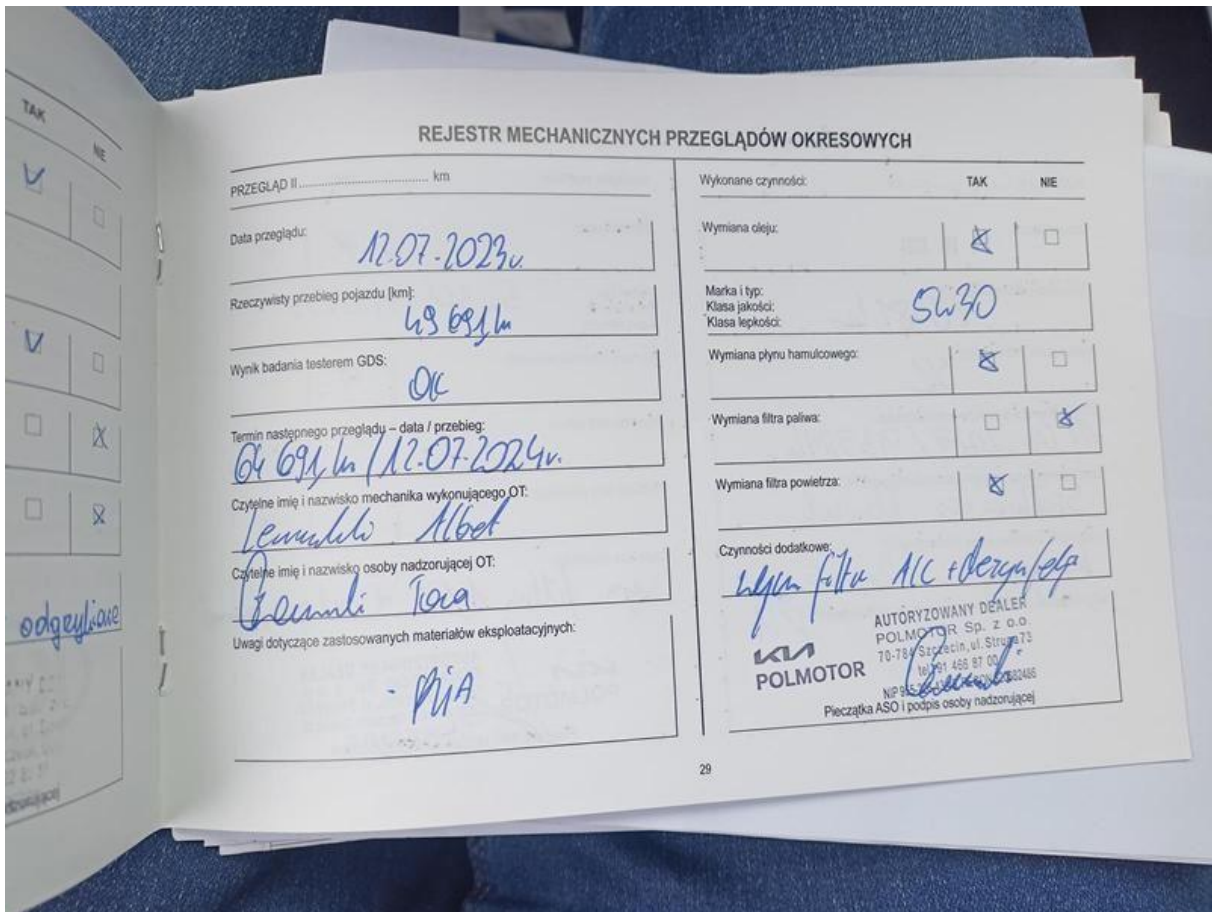 TAK
NIE
odgrzybianie
REJESTR MECHANICZNYCH PRZEGLĄDÓW OKRESOWYCH
PRZEGLĄD II .......................................... km
Data przeglądu:
12.07.2023r.
Rzeczywisty przebieg pojazdu [km]:
49 691 km
Wynik badania testerem GDS:
OK
Termin następnego przeglądu – data / przebieg:
64 691 km / 12.07.2024r.
Czytelne imię i nazwisko mechanika wykonującego OT:
Czytelne imię i nazwisko osoby nadzorującej OT:
Uwagi dotyczące zastosowanych materiałów eksploatacyjnych:
Wykonane czynności:
TAK
NIE
Wymiana oleju:
Marka i typ:
Klasa jakości:
Klasa lepkości:
5w30
Wymiana płynu hamulcowego:
Wymiana filtra paliwa:
Wymiana filtra powietrza:
Czynności dodatkowe:
filtra A/C
KIA
POLMOTOR
AUTORYZOWANY DEALER
POLMOTOR Sp. z o.o.
70-784 Szczecin, ul. Struga 73
tel. 91 466 87 00
NIP
Pieczątka ASO i podpis osoby nadzorującej
29